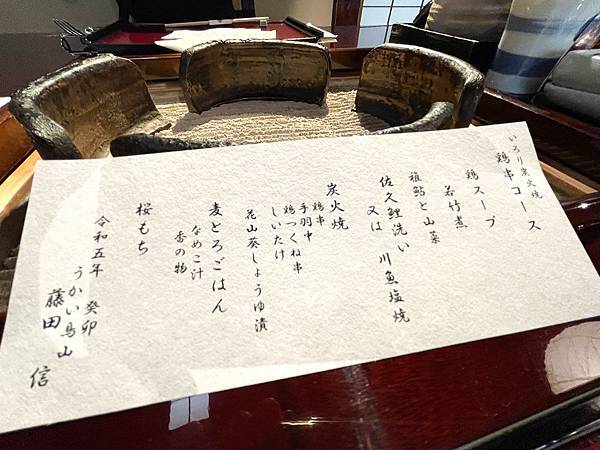 いろり炭火焼
鶏串コース
鶏スープ
若竹煮
稚鮎と山菜
佐久鯉洗い
又は 川魚塩焼
炭火焼
鶏串
手羽中
鶏つくね串
しいたけ
花山葵しょうゆ漬
麦とろごはん
なめこ汁
香の物
桜もち
令和五年 癸卯
うかい鳥山
藤田 信